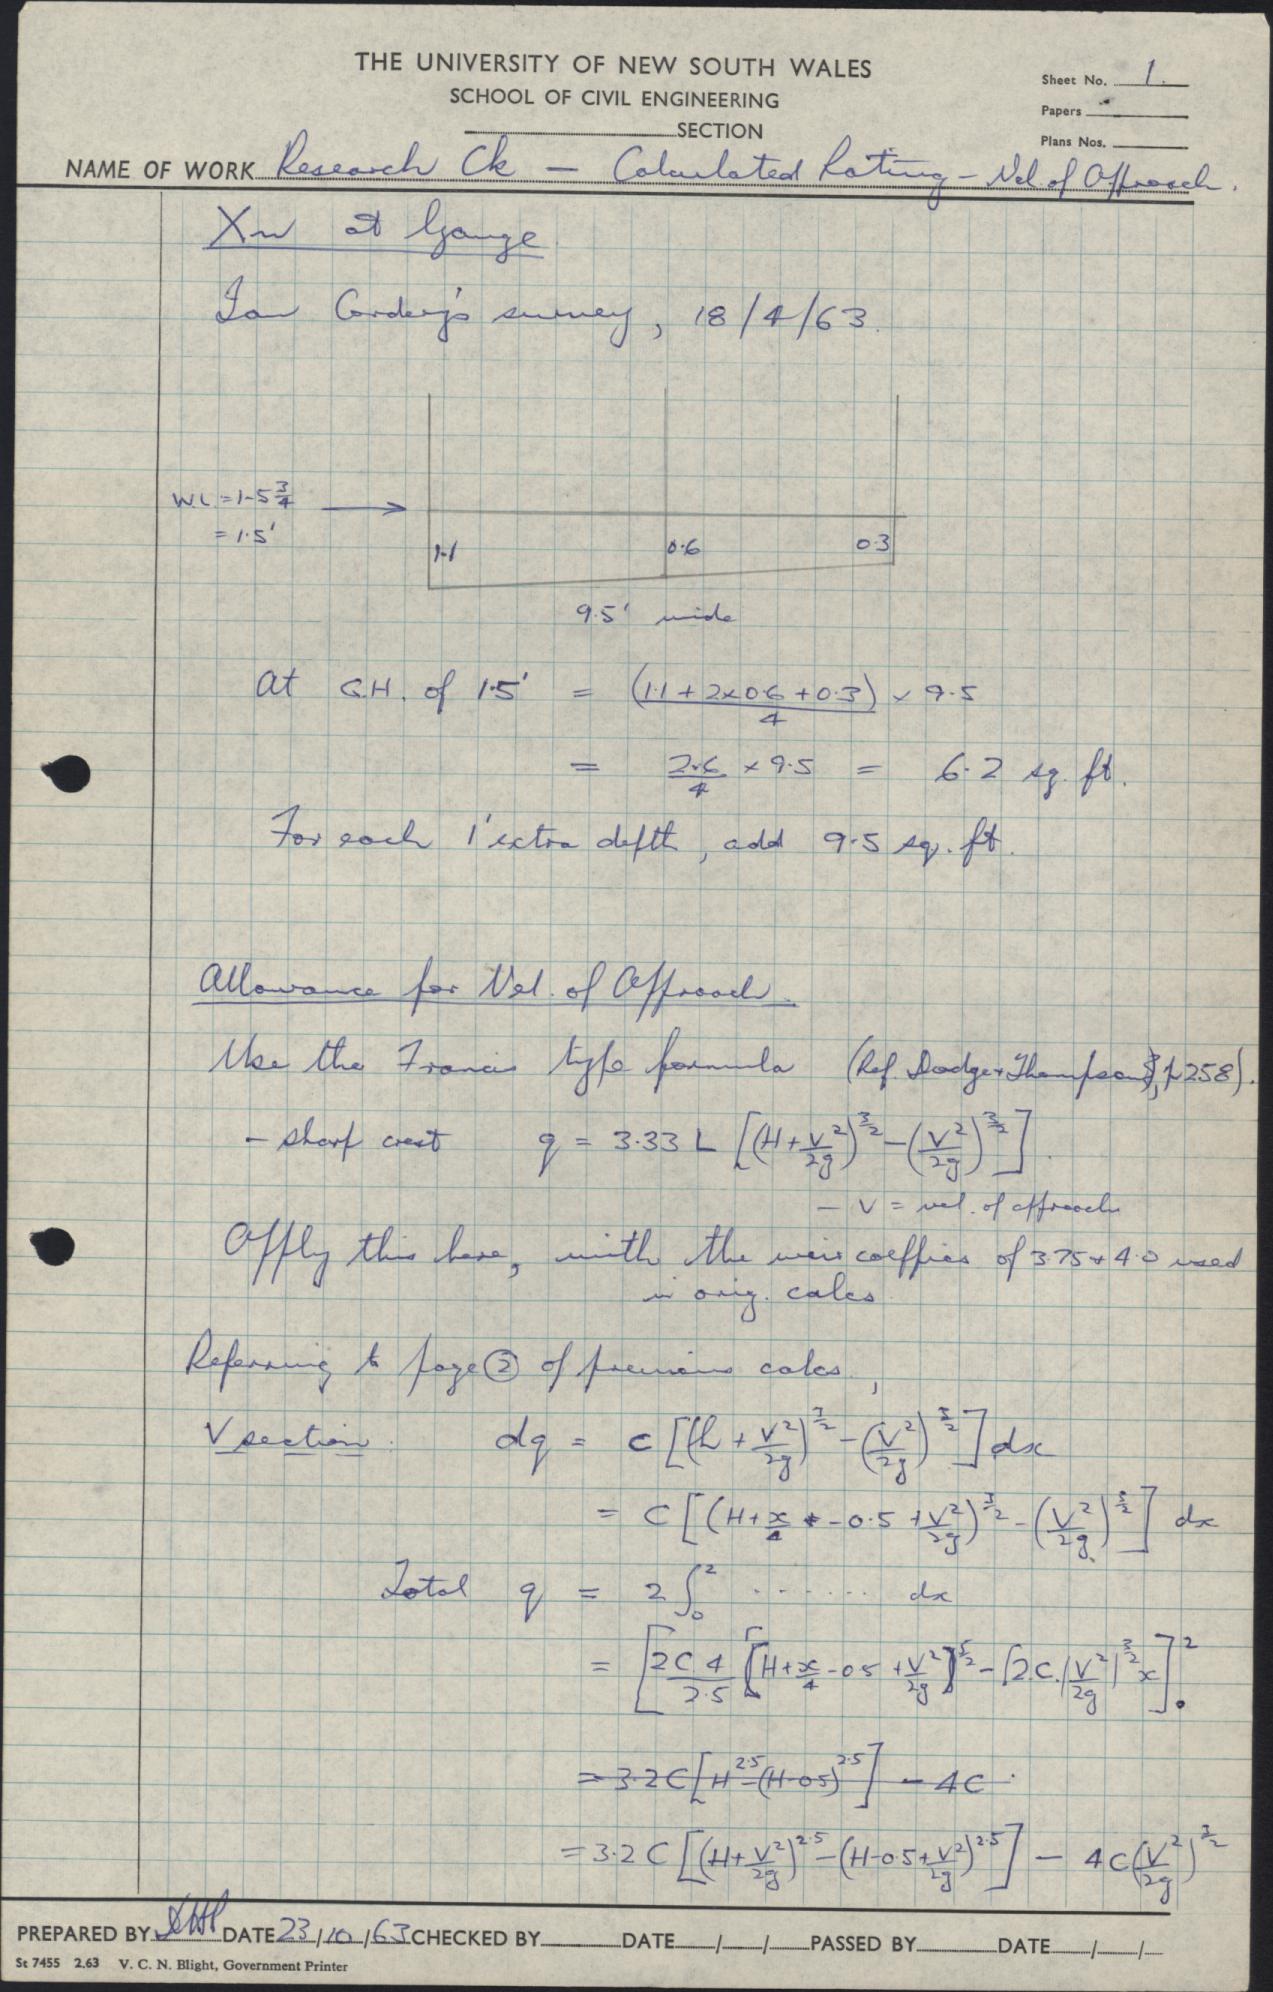 THE UNIVERSITY OF NEW SOUTH WALES
SCHOOL OF CIVIL ENGINEERING
SECTION
Sheet No. 1.
Papers
Plans Nos.
NAME OF WORK Research Ck — Calculated Rating – Vel. of Approach.
Xn at Gauge
Ian Cordery's survey, 18/4/63.
W.L. = 1-5 3/4
= 1.5'
1.1 0.6 0.3
9.5' wide
At G.H. of 1.5' = (1.1 + 2x0.6 + 0.3)/4 x 9.5
= 2.6/4 x 9.5 = 6.2 sq. ft.
For each 1' extra depth, add 9.5 sq. ft.
Allowance for Vel. of Approach.
Use the Francis type formula (Ref. Dodge & Thompson, p 258).
– sharp crest q = 3.33 L [(H + V²/2g)^3/2 – (V²/2g)^3/2].
– V = vel. of approach
Apply this here, with the weir coeffics of 3.75 & 4.0 used
in orig. calcs
Referring to page ② of previous calcs.,
V section. dq = C [(h + V²/2g)^3/2 – (V²/2g)^3/2] dx
= C [(H + x/4 – 0.5 + V²/2g)^3/2 – (V²/2g)^3/2] dx
Total q = 2 ∫₀² ....... dx
= [2C 4/2.5 [H + x/4 – 0.5 + V²/2g]^5/2 – [2.C.(V²/2g)^3/2 x]₀²
= 3.2 C [H^2.5 – (H-0.5)^2.5] – 4C.
= 3.2 C [(H + V²/2g)^2.5 – (H – 0.5 + V²/2g)^2.5] – 4C(V²/2g)^3/2
PREPARED BY DATE 23/10/63 CHECKED BY DATE / / PASSED BY DATE / /
St 7455 2.63 V. C. N. Blight, Government Printer